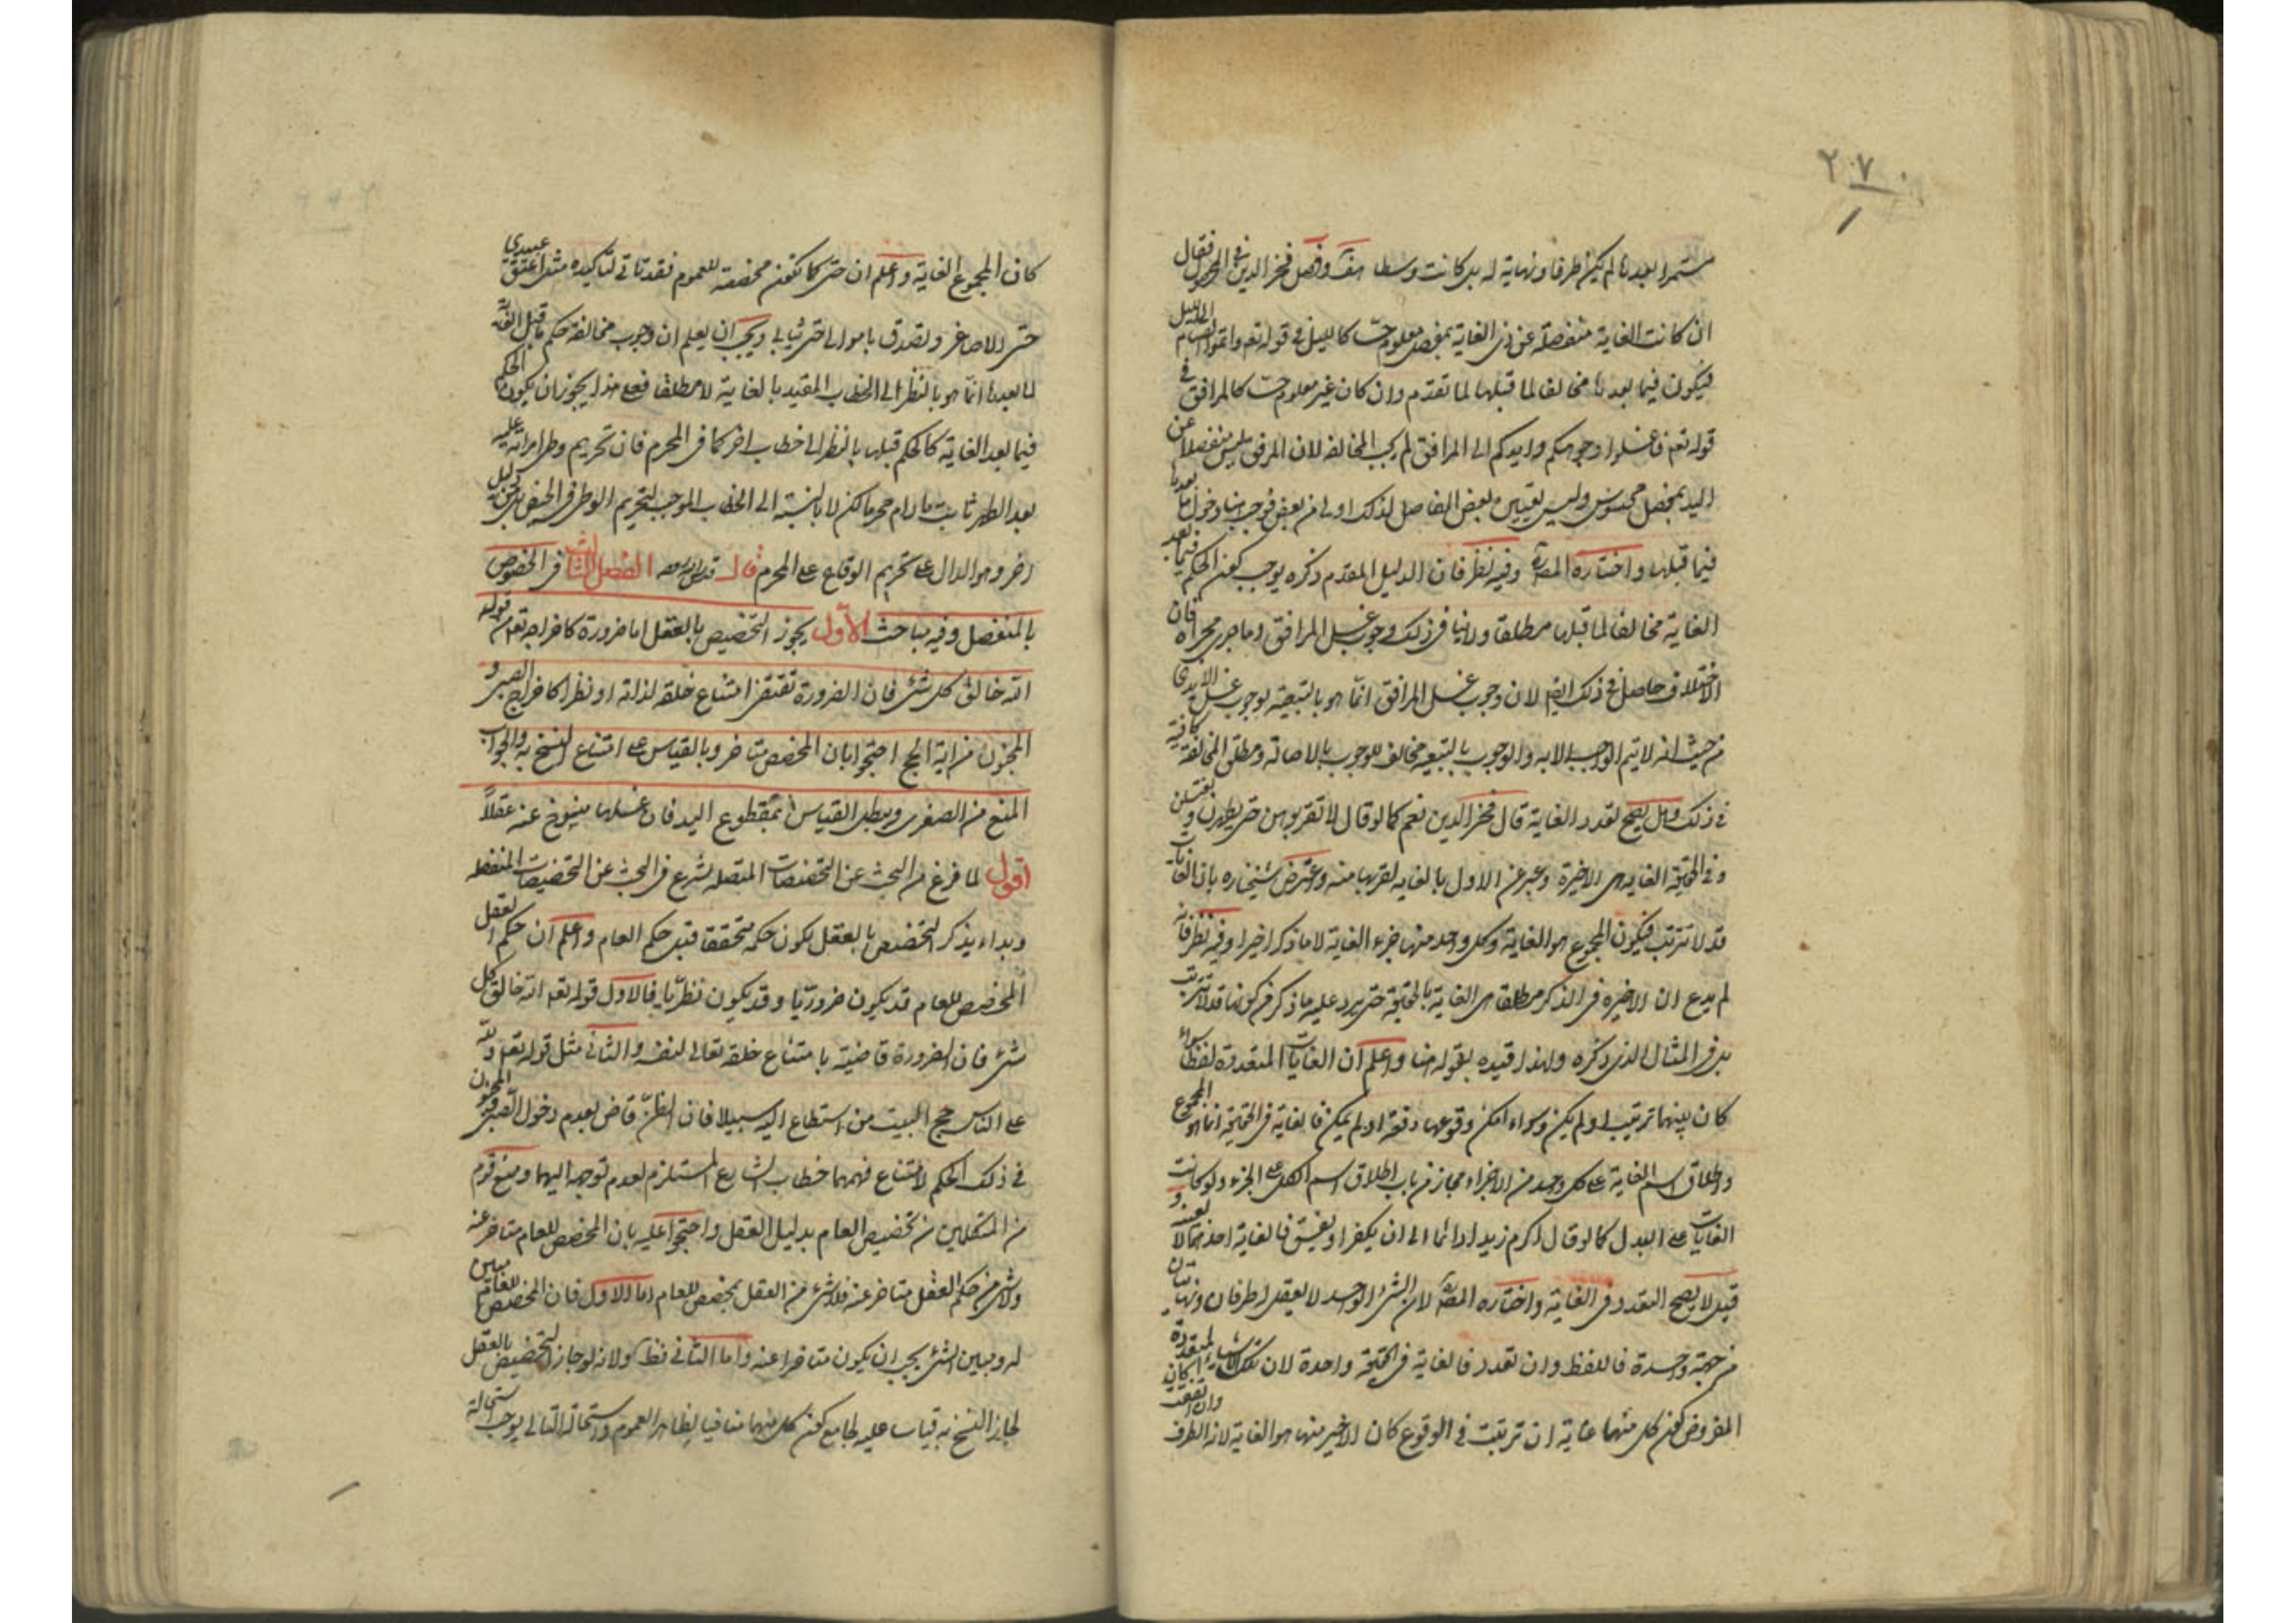 ٢٧٠
مستمرا بعدها لم يكن طرفا ونهاية له بل كانت وسطا هف وفصل فخر الدين في المحصول فقال
ان كانت الغاية منفصلة عن ذي الغاية بمفصل معلوم حسا كالليل في قوله تعم واتموا الصيام الى الليل
فيكون فيما بعدها مخالفا لما قبلها لما تقدم وان كان غير معلوم حسا كالمرافق في
قوله تعم فاغسلوا وجوهكم وايديكم الى المرافق لم يجب المخالفة لان المرفق ليس منفصلا عن
اليد بمفصل محسوس وليس تعيين بعض المفاصل لذلك اولى من بعض فوجب هنا دخول ما بعدها
فيما قبلها واختاره المصره وفيه نظر فان الدليل المقدم ذكره يوجب كون الحكم فيما بعد
الغاية مخالفا لما قبلها مطلقا ولا ينافي ذلك وجوب غسل المرافق وما جرى مجراه فان
الاختلاف حاصل في ذلك ايضا لان وجوب غسل المرافق انما هو بالتبعية لوجوب غسل الايدي
من حيث انه لا يتم الواجب الا به والوجوب بالتبعيه مخالف للوجوب بالاصالة ومطلق المخالفة كافية
في ذلك وهل يصح تعدد الغاية قال فخر الدين نعم كما لو قال لا تقربوهن حتى يطهرن ويغتسلن
وفي الحقيقة الغايه هي الاخيرة وعبر عن الاول بالغايه لقربها منه واعترض شيخنا ره بان الغايات
قد لا تترتب فيكون المجموع هو الغاية وكل واحد منها جزء الغاية لا ما ذكر اخيرا وفيه نظر فانه
لم يدع ان الاخيره في الذكر مطلقا هي الغاية بالحقيقة حتى يرد عليه ما ذكر من كونها قد لا تترتب
بل في المثال الذي ذكره ولهذا قيده بقوله هنا واعلم ان الغايات المتعددة لفظا سواء
كان بينهما ترتيب او لم يكن وسواء امكن وقوعها دفعة او لم يمكن فالغاية في الحقيقة انما هو المجموع
واطلاق اسم الغاية على كل واحد من الاجزاء مجاز من باب اطلاق اسم الكل على الجزء ولو كانت
الغايات على البدل كما لو قال اكرم زيدا دائما الى ان يكفر او يفسق فالغاية احدهما لا بعينه و
قيل لا يصح التعدد في الغاية واختاره المصره لان الشئ الواحد لا يعقل له طرفان ونهايتان
من جهة واحدة فاللفظ وان تعدد فالغاية في الحقيقة واحدة لان تلك الاشياء المتعددة ان كان
المفروض كون كل منهما غاية ان ترتبت في الوقوع كان الاخير منها هو الغاية لانه الطرف وان اتفقت
كان المجموع الغاية واعلم ان حتى كما تكون مخصصة للعموم فقد تاتي لتاكيده مثل اعتق عبيدي
حتى الاصاغر وتصدق باموالى حتى ثيابي ويجب ان يعلم ان وجوب مخالفة حكم ما قبل الغاية
لما بعدها انما هو بالنظر الى الخطاب المقيد بالغاية لا مطلقا فعلى هذا يجوز ان يكون الحكم
فيما بعد الغاية كالحكم قبلها بالنظر الى خطاب اخر كما في المحرم فان تحريم وطي امراته عليه
بعد الطهر ثابت ما دام محرما لكن لا بالنسبة الى الخطاب الموجب لتحريم الوطي في الحيض بل من دليل
اخر وهو الدال على تحريم الوقاع على المحرم قال قدس الله روحه الفصل الثالث في المخصوص
بالمنفصل وفيه مباحث الاول يجوز التخصيص بالعقل اما ضرورة كاخراجه تعم من قوله
الله خالق كل شئ فان الضرورة تقتضى امتناع خلقه لذاته او نظرا كاخراج الصبي و
المجنون من اية الحج احتجوا بان المخصص متاخر وبالقياس على امتناع النسخ به والجواب
المنع من الصغرى ويبطل القياس بمقطوع اليد فان غسلها منسوخ عنه عقلا
اقول لما فرغ من البحث عن المخصصات المتصله شرع في البحث عن المخصصات المنفصله
وبداء بذكر التخصيص بالعقل لكون حكمه متحققا قبل حكم العام واعلم ان حكم العقل
المخصص للعام قد يكون ضروريا وقد يكون نظريا فالاول قوله تعم الله خالق كل
شئ فان الضرورة قاضية بامتناع خلقه تعالى لنفسه والثاني مثل قوله تعم ولله
على الناس حج البيت من استطاع اليه سبيلا فان النظر قاض بعدم دخول الصبي والمجنون
في ذلك الحكم لامتناع فهمهما خطاب الشارع المستلزم لعدم توجهه اليهما ومنع قوم
من المتكلمين من تخصيص العام بدليل العقل واحتجوا عليه بان المخصص للعام متاخر عنه
ولا شئ من حكم العقل متاخر عنه فلا شئ من العقل بمخصص للعام اما الاول فان المخصص للعام مبين
له ومبين الشئ يجب ان يكون متاخرا عنه واما الثاني فظ ولانه لو جاز التخصيص بالعقل
لجاز النسخ به قياسا عليه لجامع كون كل منهما منافيا لظاهر العموم واستحالة التالي يوجب استحالة